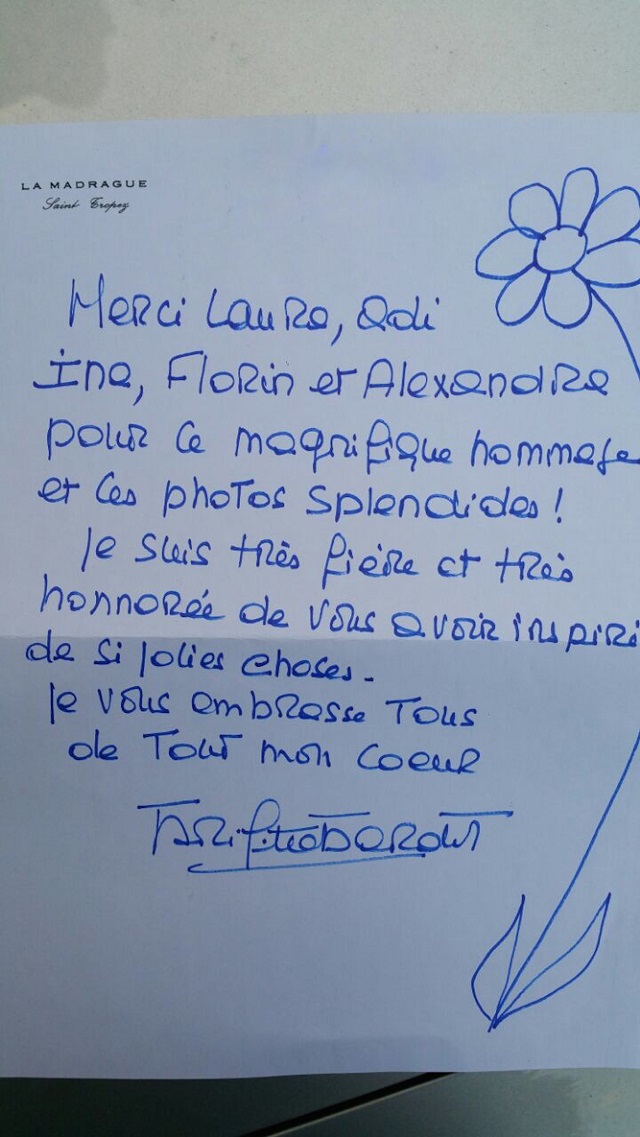 LA MADRAGUE
Saint Tropez
Merci Laure, Adi
Ina, Florin et Alexandra
pour ce magnifique hommage
et ces photos splendides !
Je suis très fière et très
honnorée de vous avoir inspiré
de si jolies choses.
Je vous embrasse Tous
de Tout mon coeur
Brigitte Bardot